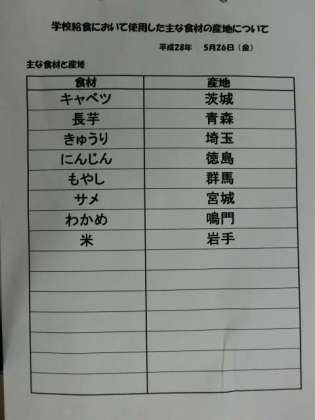 学校給食において使用した主な食材の産地について
平成28年　5月26日（金）
主な食材と産地
食材　産地
キャベツ　茨城
長芋　青森
きゅうり　埼玉
にんじん　徳島
もやし　群馬
サメ　宮城
わかめ　鳴門
米　岩手